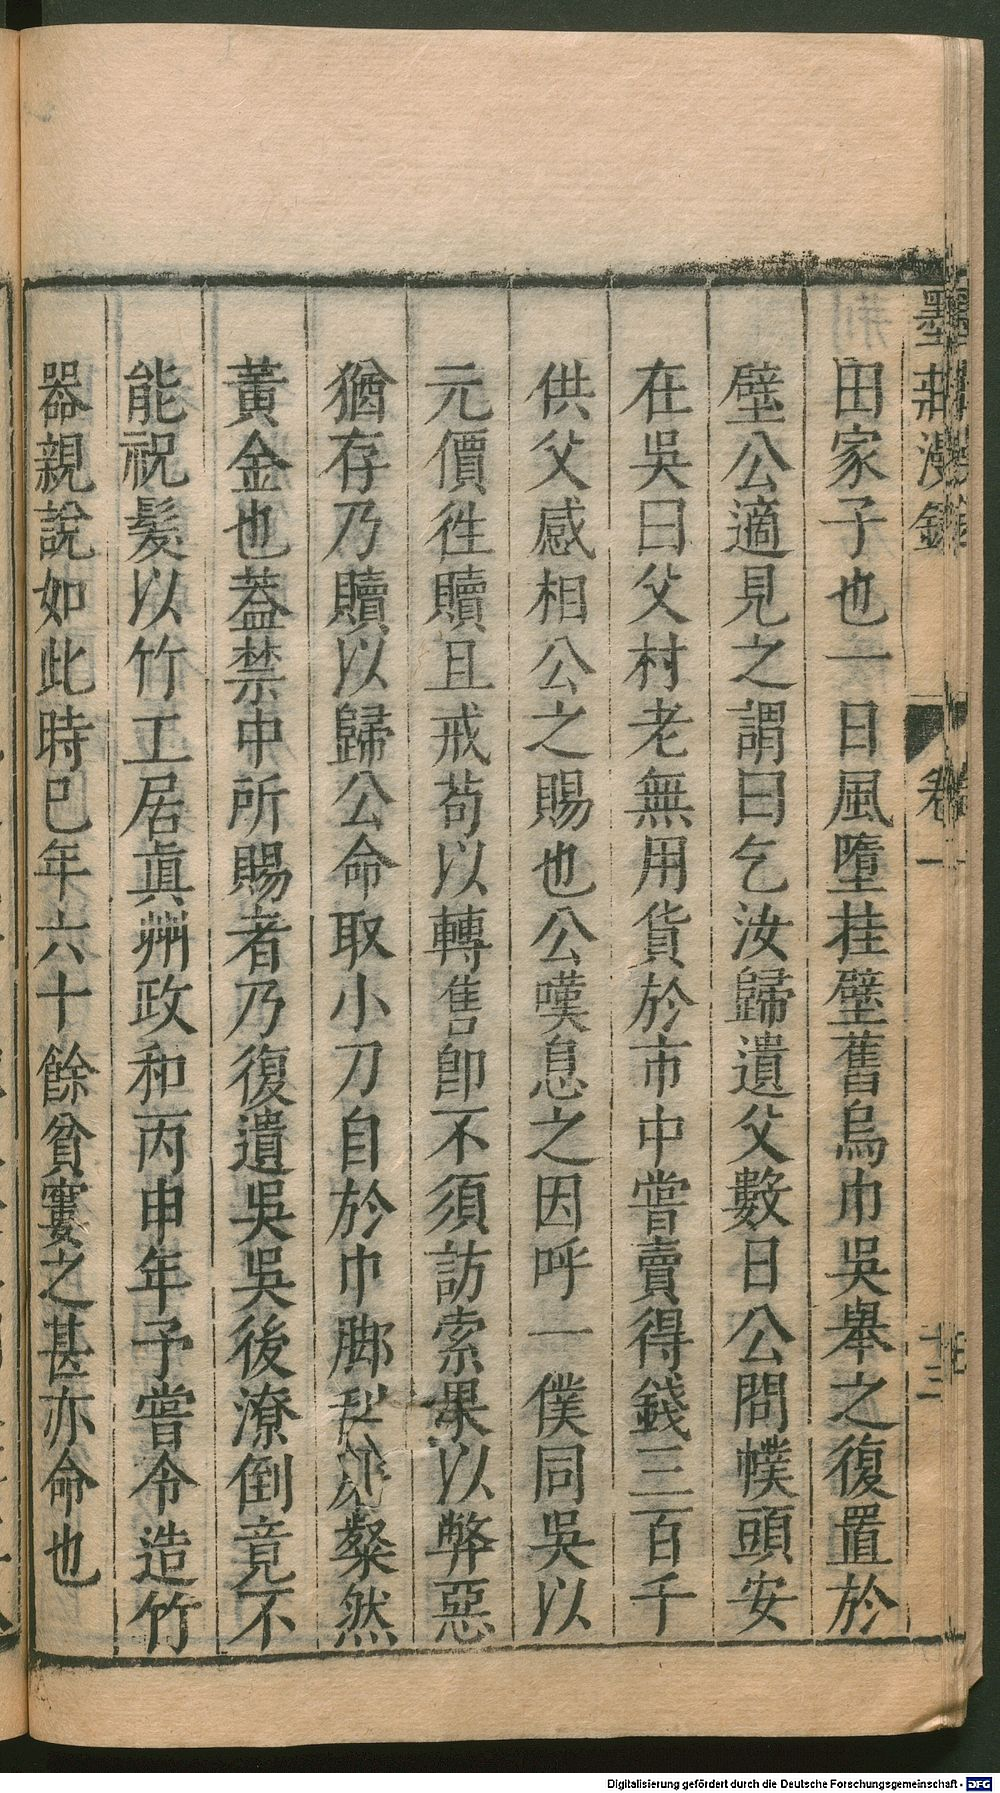 墨莊漫錄
卷一
十三
田家子也一日風墮挂壁舊烏巾吳舉之復置於
壁公適見之謂曰乞汝歸遺父數日公問幞頭安
在吳曰父村老無用貨於市中嘗賣得錢三百千
供父感相公之賜也公嘆息之因呼一僕同吳以
元價徃贖且戒苟以轉售卽不須訪索果以弊惡
猶存乃贖以歸公命取小刀自於巾脚刮粲然
黃金也葢禁中所賜者乃復遺吳吳後潦倒竟不
能祝髮以竹工居眞州政和丙申年予嘗令造竹
器親說如此時已年六十餘貧窶之甚亦命也
Digitalisierung gefördert durch die Deutsche Forschungsgemeinschaft - DFG